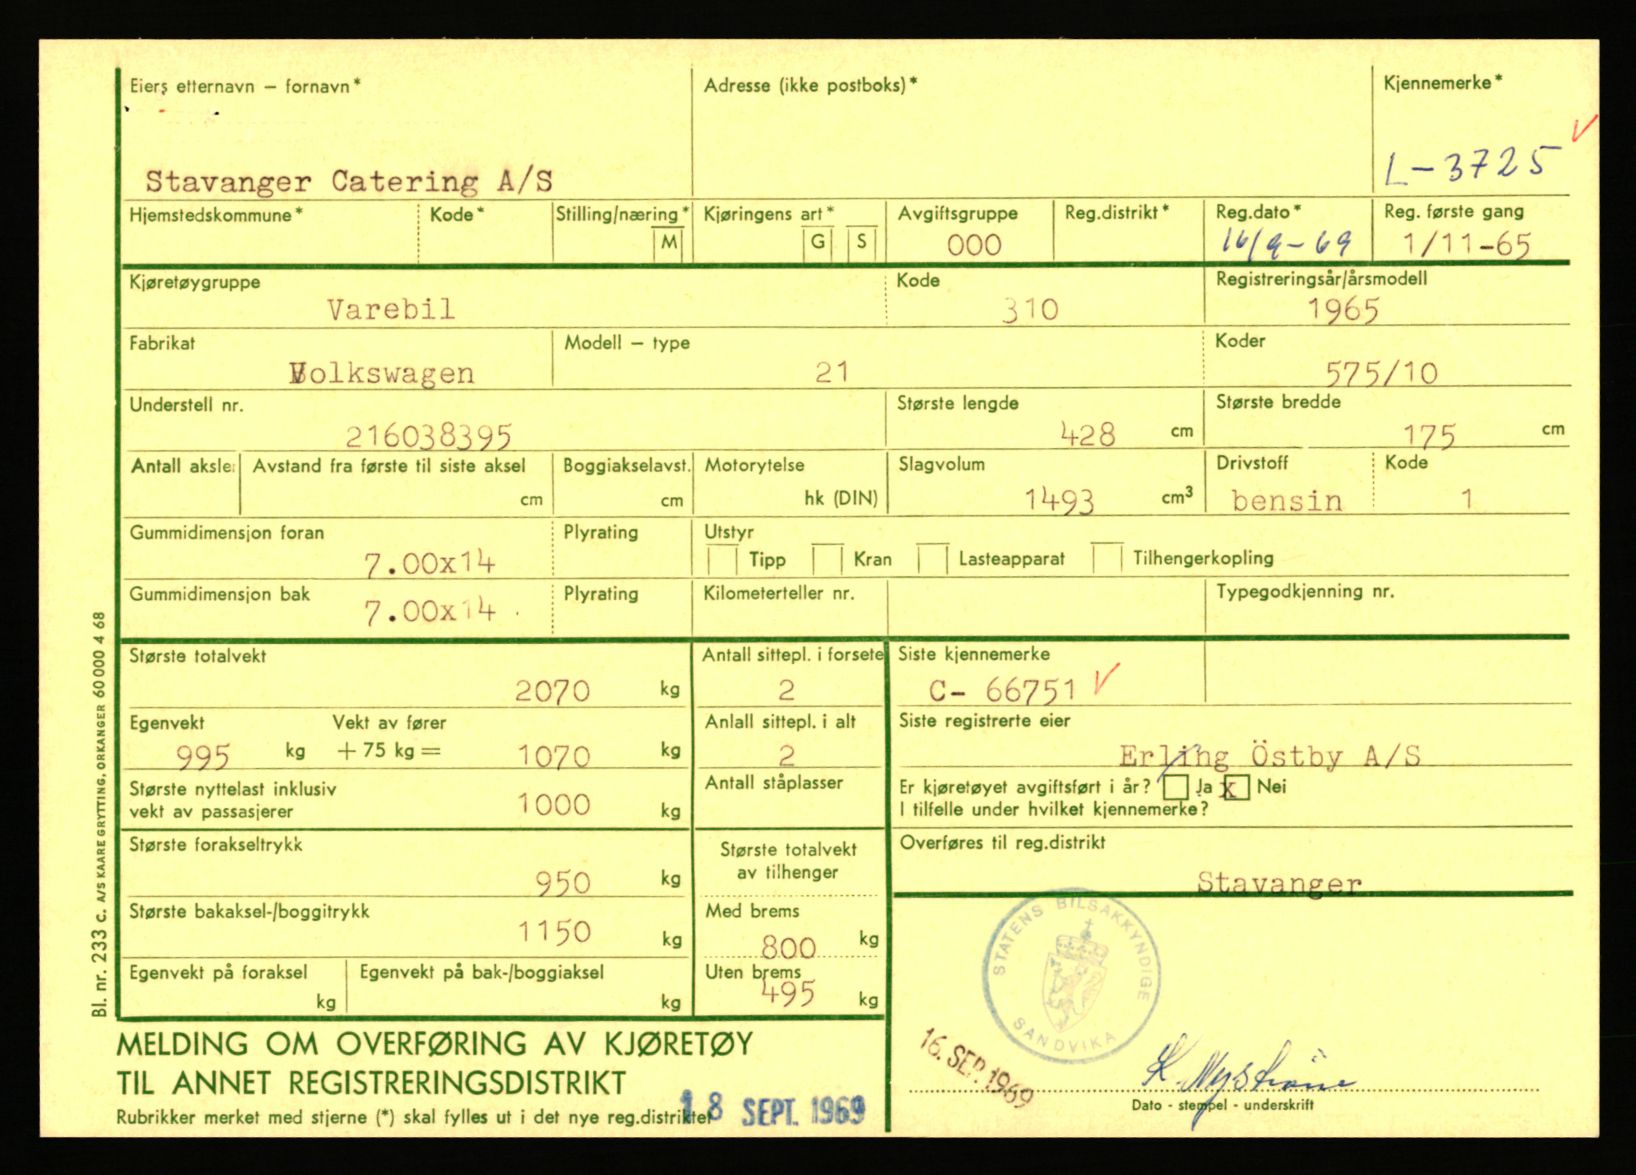 Eiers etternavn – fornavn*
Adresse (ikke postboks)*
Kjennemerke*
Stavanger Catering A/S
L-3725
Hjemstedskommune*
Kode*
Stilling/næring*
Kjøringens art*
Avgiftsgruppe
Reg.distrikt*
Reg.dato*
Reg. første gang
M
G
S
000
16/9-69
1/11-65
Kjøretøygruppe
Kode
Registreringsår/årsmodell
Varebil
310
1965
Fabrikat
Modell – type
Koder
Volkswagen
21
575/10
Understell nr.
Største lengde
Største bredde
216038395
428 cm
175 cm
Antall aksler
Avstand fra første til siste aksel
Boggiakselavst.
Motorytelse
Slagvolum
Drivstoff
Kode
cm
cm
hk (DIN)
1493 cm³
bensin
1
Gummidimensjon foran
Plyrating
Utstyr
7.00x14
Tipp
Kran
Lasteapparat
Tilhengerkopling
Gummidimensjon bak
Plyrating
Kilometerteller nr.
Typegodkjenning nr.
7.00x14
Største totalvekt
Antall sittepl. i forsete
Siste kjennemerke
2070 kg
2
C- 66751
Egenvekt
Vekt av fører
Anlall sittepl. i alt
Siste registrerte eier
995 kg + 75 kg = 1070 kg
2
Erling Östby A/S
Største nyttelast inklusiv
vekt av passasjerer
1000 kg
Antall ståplasser
Er kjøretøyet avgiftsført i år? Ja x Nei
I tilfelle under hvilket kjennemerke?
Største forakseltrykk
950 kg
Største totalvekt
av tilhenger
Overføres til reg.distrikt
Stavanger
Største bakaksel-/boggitrykk
1150 kg
Med brems
800 kg
Egenvekt på foraksel
kg
Egenvekt på bak-/boggiaksel
kg
Uten brems
495 kg
STATENS BILSAKKYNDIGE
SANDVIKA
MELDING OM OVERFØRING AV KJØRETØY
TIL ANNET REGISTRERINGSDISTRIKT
16. SEP. 1969
K Nyström
Dato - stempel - underskrift
Rubrikker merket med stjerne (*) skal fylles ut i det nye reg.distriktet
18 SEPT. 1969
Bl. nr. 233 C. A/S KAARE GRYTTING, ORKANGER 60 000 4 68